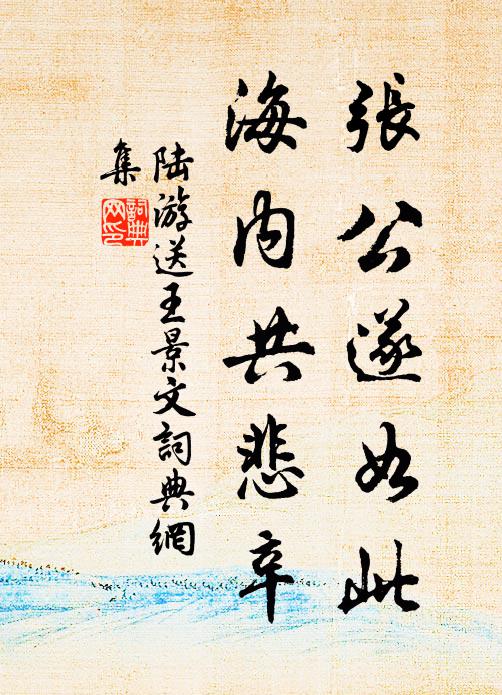 張公遂如此
海内共悲辛
陆游送王景文詞典網
集
詞典
网印